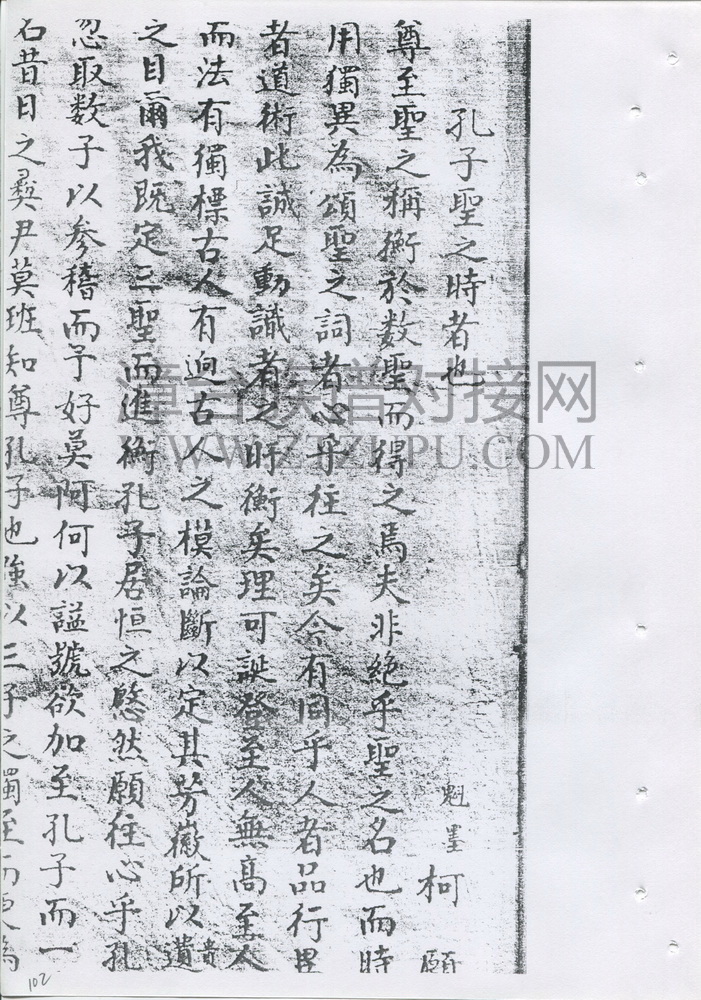 孔子聖之時者也
魁墨 柯願
尊至聖之稱衡於数聖而得之焉夫非絶乎聖之名也而時
用獨異為頌聖之詞者心乎往之矣今有同乎人者品行異
者道術此誠足動識者之盱衡矣理可誕登至人無高至人
而法有獨標古人有迥古人之模論斷以定其芳徽所以遺昔
之目爾我既定三聖而進衡孔子居恒之慇然願往心乎孔
忍取数子以參稽而予好莫阿何以謚號欲加至孔子而一
名昔日之彛尹莫班知尊孔子也強以三子之獨至而更為
漳台族谱对接网
WWW.ZTZUPU.COM
102